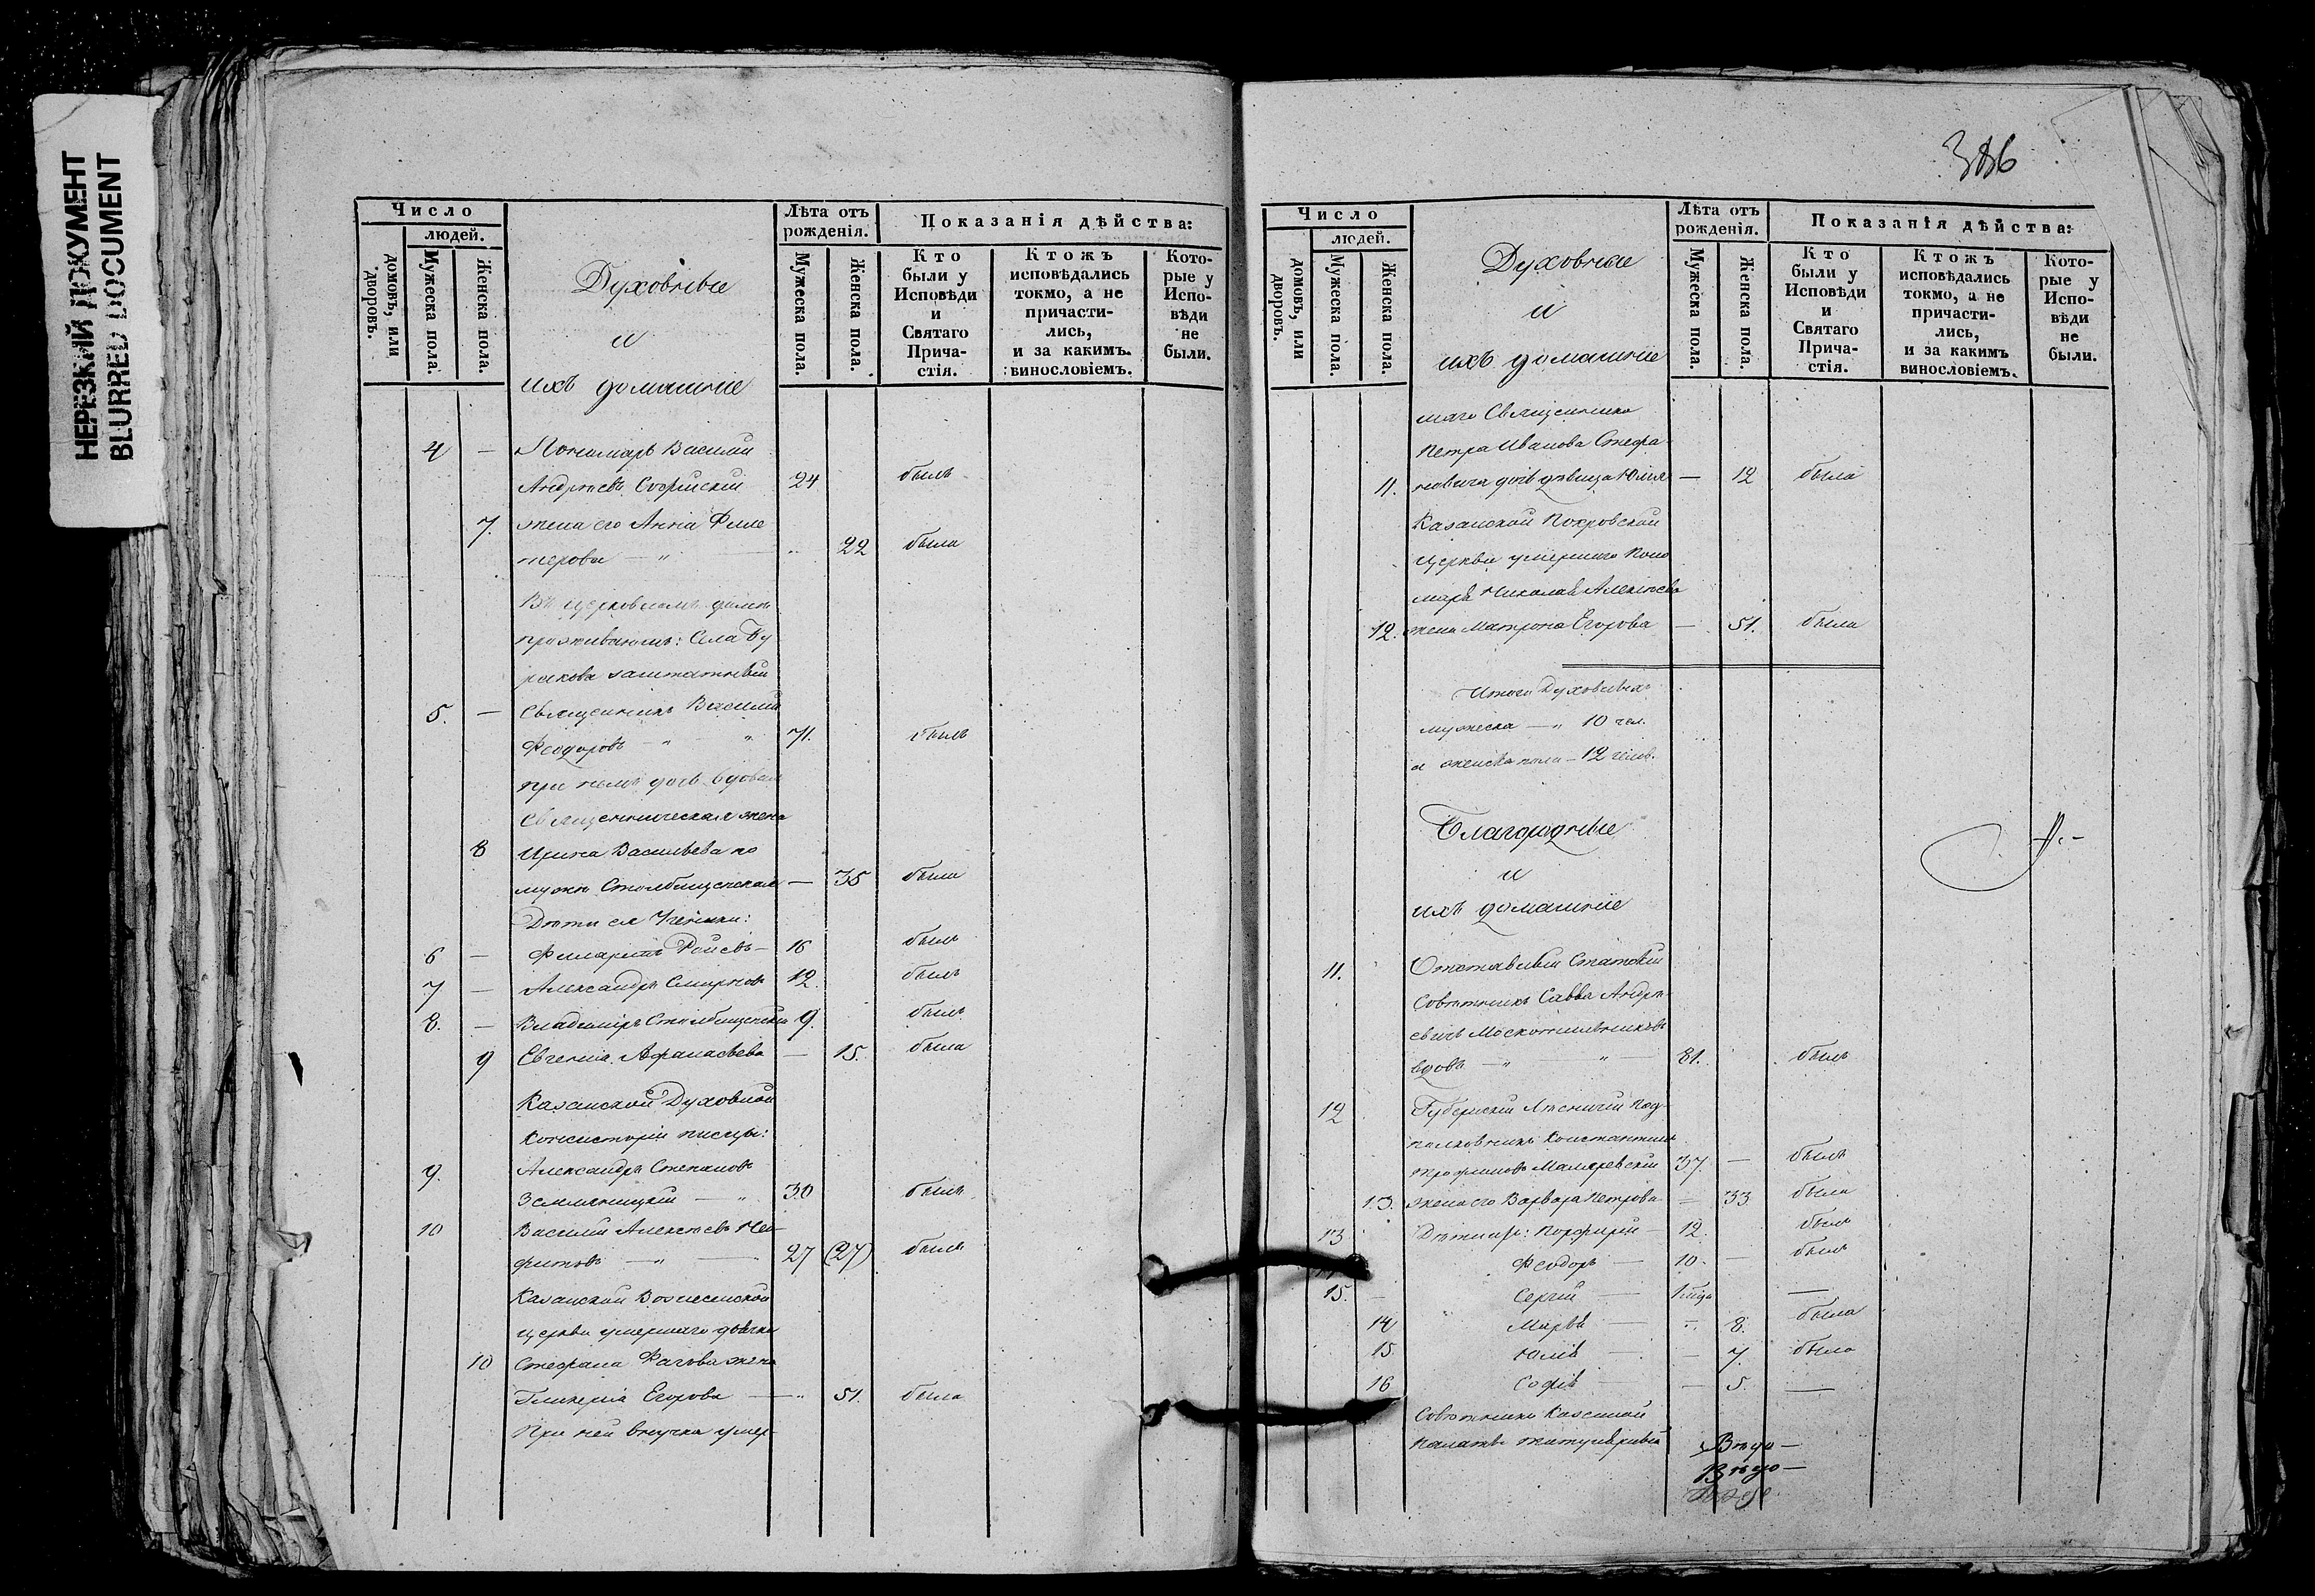 НЕРЕЗКИЙ ДОКУМЕНТ
BLURRED DOCUMENT
Число
людей.
домовъ, или дворовъ.
Мужеска пола.
Женска пола.
Духовные
и
ихъ домашніе
Лѣта отъ рожденія.
Мужеска пола.
Женска пола.
Показанія дѣйства:
Кто были у Исповѣди и Святаго Прича-стія.
Ктожъ исповѣдались токмо, а не причасти-лись, и за какимъ винословіемъ.
Кото-рые у Испо-вѣди не были.
4 — Пономарь Василій
Андреевъ Софійскій 24 былъ
7. жена его Анна Филе
терова — " 22 была
Въ церковномъ домѣ
проживаютъ: Села Бу
ракова заштатный
5. — Священникъ Василій
Феодоровъ — " 71. былъ
при немъ дочь вдовая
Священническая жена
8 Ирина Васильева по
мужу Столбищенская — 35 была
Дѣти ея Ученики:
6 — Филаретъ — 16 былъ
7 — Александръ Смирновъ 12. былъ
8. — Владиміръ Столбищенскій 9. былъ
9 Евгенія Афанасьева — 15. была
Казанской Духовной
Консисторіи писцы:
9. Александръ Степановъ
Земляницкій — " 30 былъ
10 Василій Алексѣевъ Нео-
фитовъ — " 27 (27) былъ
Казанской Вознесенской
церкви умершаго дьячка
10 Стефана жена
Гликерія Егорова — " 51. была
При ней внучка умер-
386
Число
людей.
домовъ, или дворовъ.
Мужеска пола.
Женска пола.
Духовные
и
ихъ домашніе
Лѣта отъ рожденія.
Мужеска пола.
Женска пола.
Показанія дѣйства:
Кто были у Исповѣди и Святаго Прича-стія.
Ктожъ исповѣдались токмо, а не причасти-лись, и за какимъ винословіемъ.
Кото-рые у Испо-вѣди не были.
шаго Священника
Петра Иванова Стефа
11. новича дочь дѣвица Юлія — 12 была
Казанской Покровской
церкви умершаго Поно
маря Николая Алексѣева
12. жена Матрона Егорова — 51. была
Итого Духовныхъ
мужеска — " 10 чел.
и женска пола — 12 челов.
Благородные
и
ихъ домашніе
11. Отставный Статскій
Совѣтникъ Савва Андре
евичъ Москотильниковъ
вдовъ — " — " — 81. былъ
12 Губернскій Лѣсничій Под
полковникъ Константинъ
Трофимовъ 37 — былъ
13. жена его Варвара Петрова — 33 была
13 Дѣти их: Порфирій — 12. былъ
Феодоръ — 10. — былъ
15. — Сергій — 1 года —
14 Марья — " 8. была
15 Юлія — — 7. была
16 Софія — — 5. —
Совѣтника Казенной
Палаты титулярный
Вѣдо —
Вѣдо —